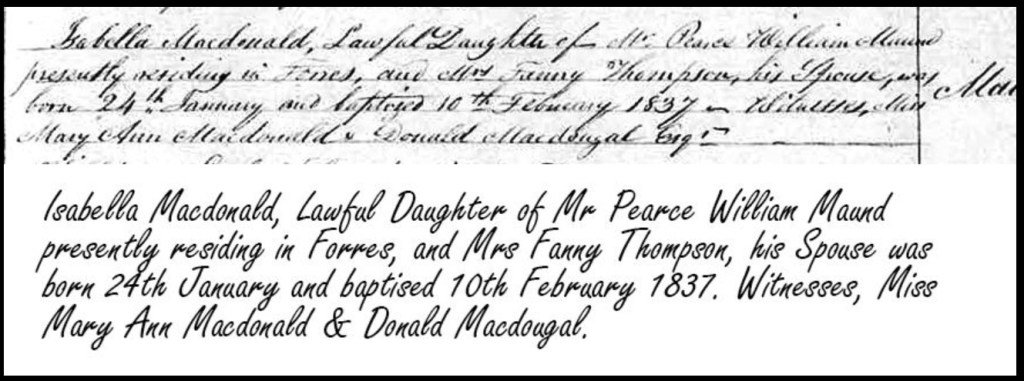 Isabella Macdonald, Lawful Daughter of Mr. Pearce William Maund
presently residing in Forres, and Mrs Fanny Thompson, his Spouse, was
born 24th January and baptised 10th February 1837 Witnesses, Miss
Mary Ann Macdonald & Donald Macdougal Esqr
Isabella Macdonald, Lawful Daughter of Mr Pearce William Maund
presently residing in Forres, and Mrs Fanny Thompson, his Spouse was
born 24th January and baptised 10th February 1837. Witnesses, Miss
Mary Ann Macdonald & Donald Macdougal.